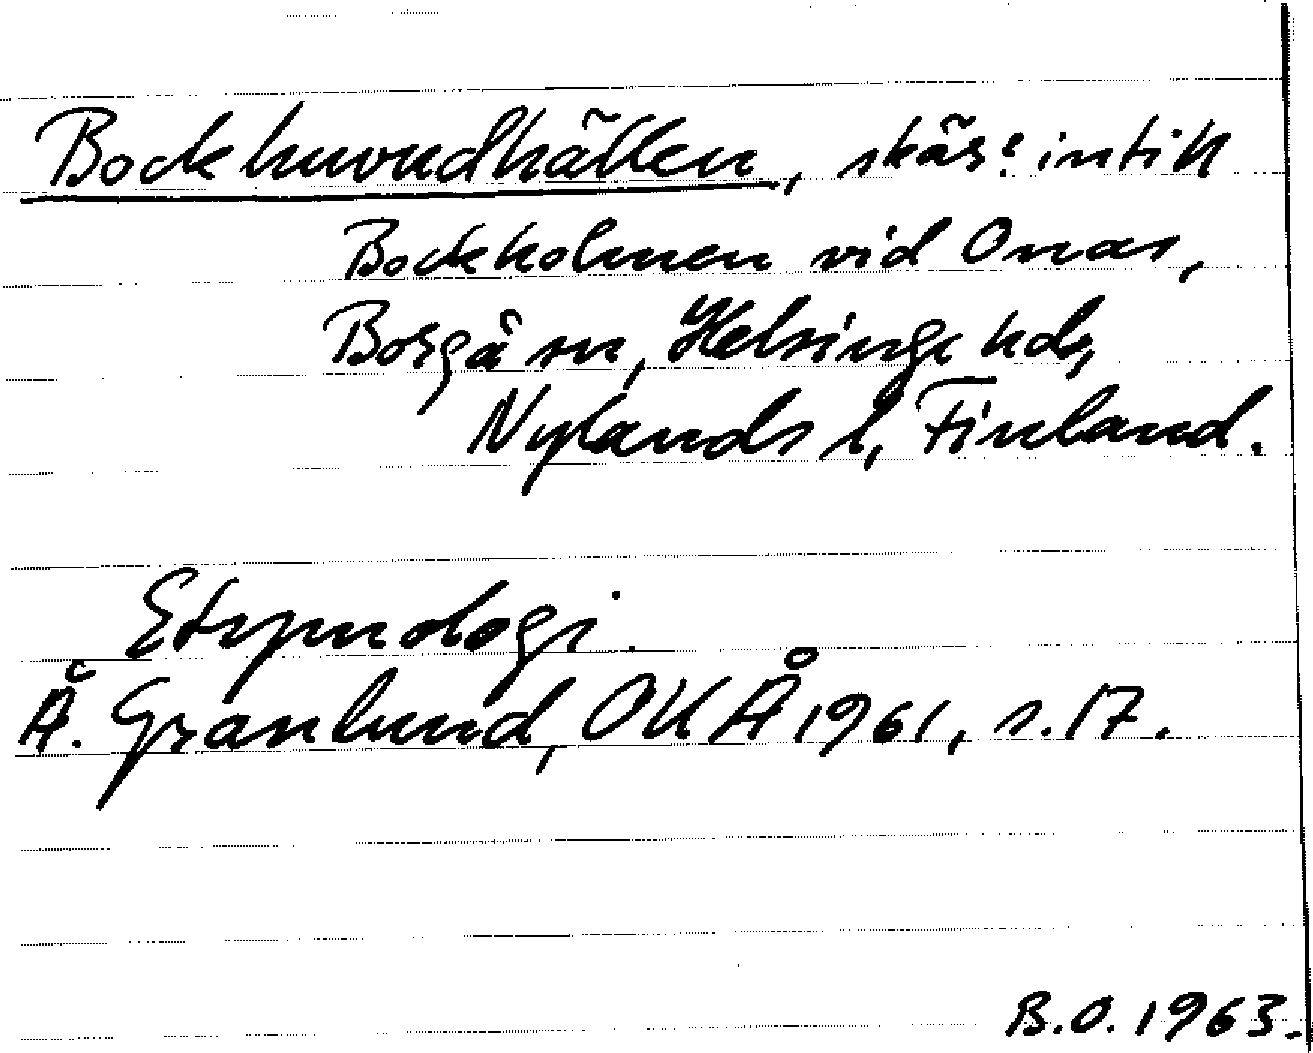 Bockhuvudhällen, skär: intill
Bockholmen vid Onas,
Borgå sn, Helsinge hd,
Nylands l, Finland.
Etymologi.
Å. Granlund, OUÅ 1961, s. 17.
B.O. 1963.